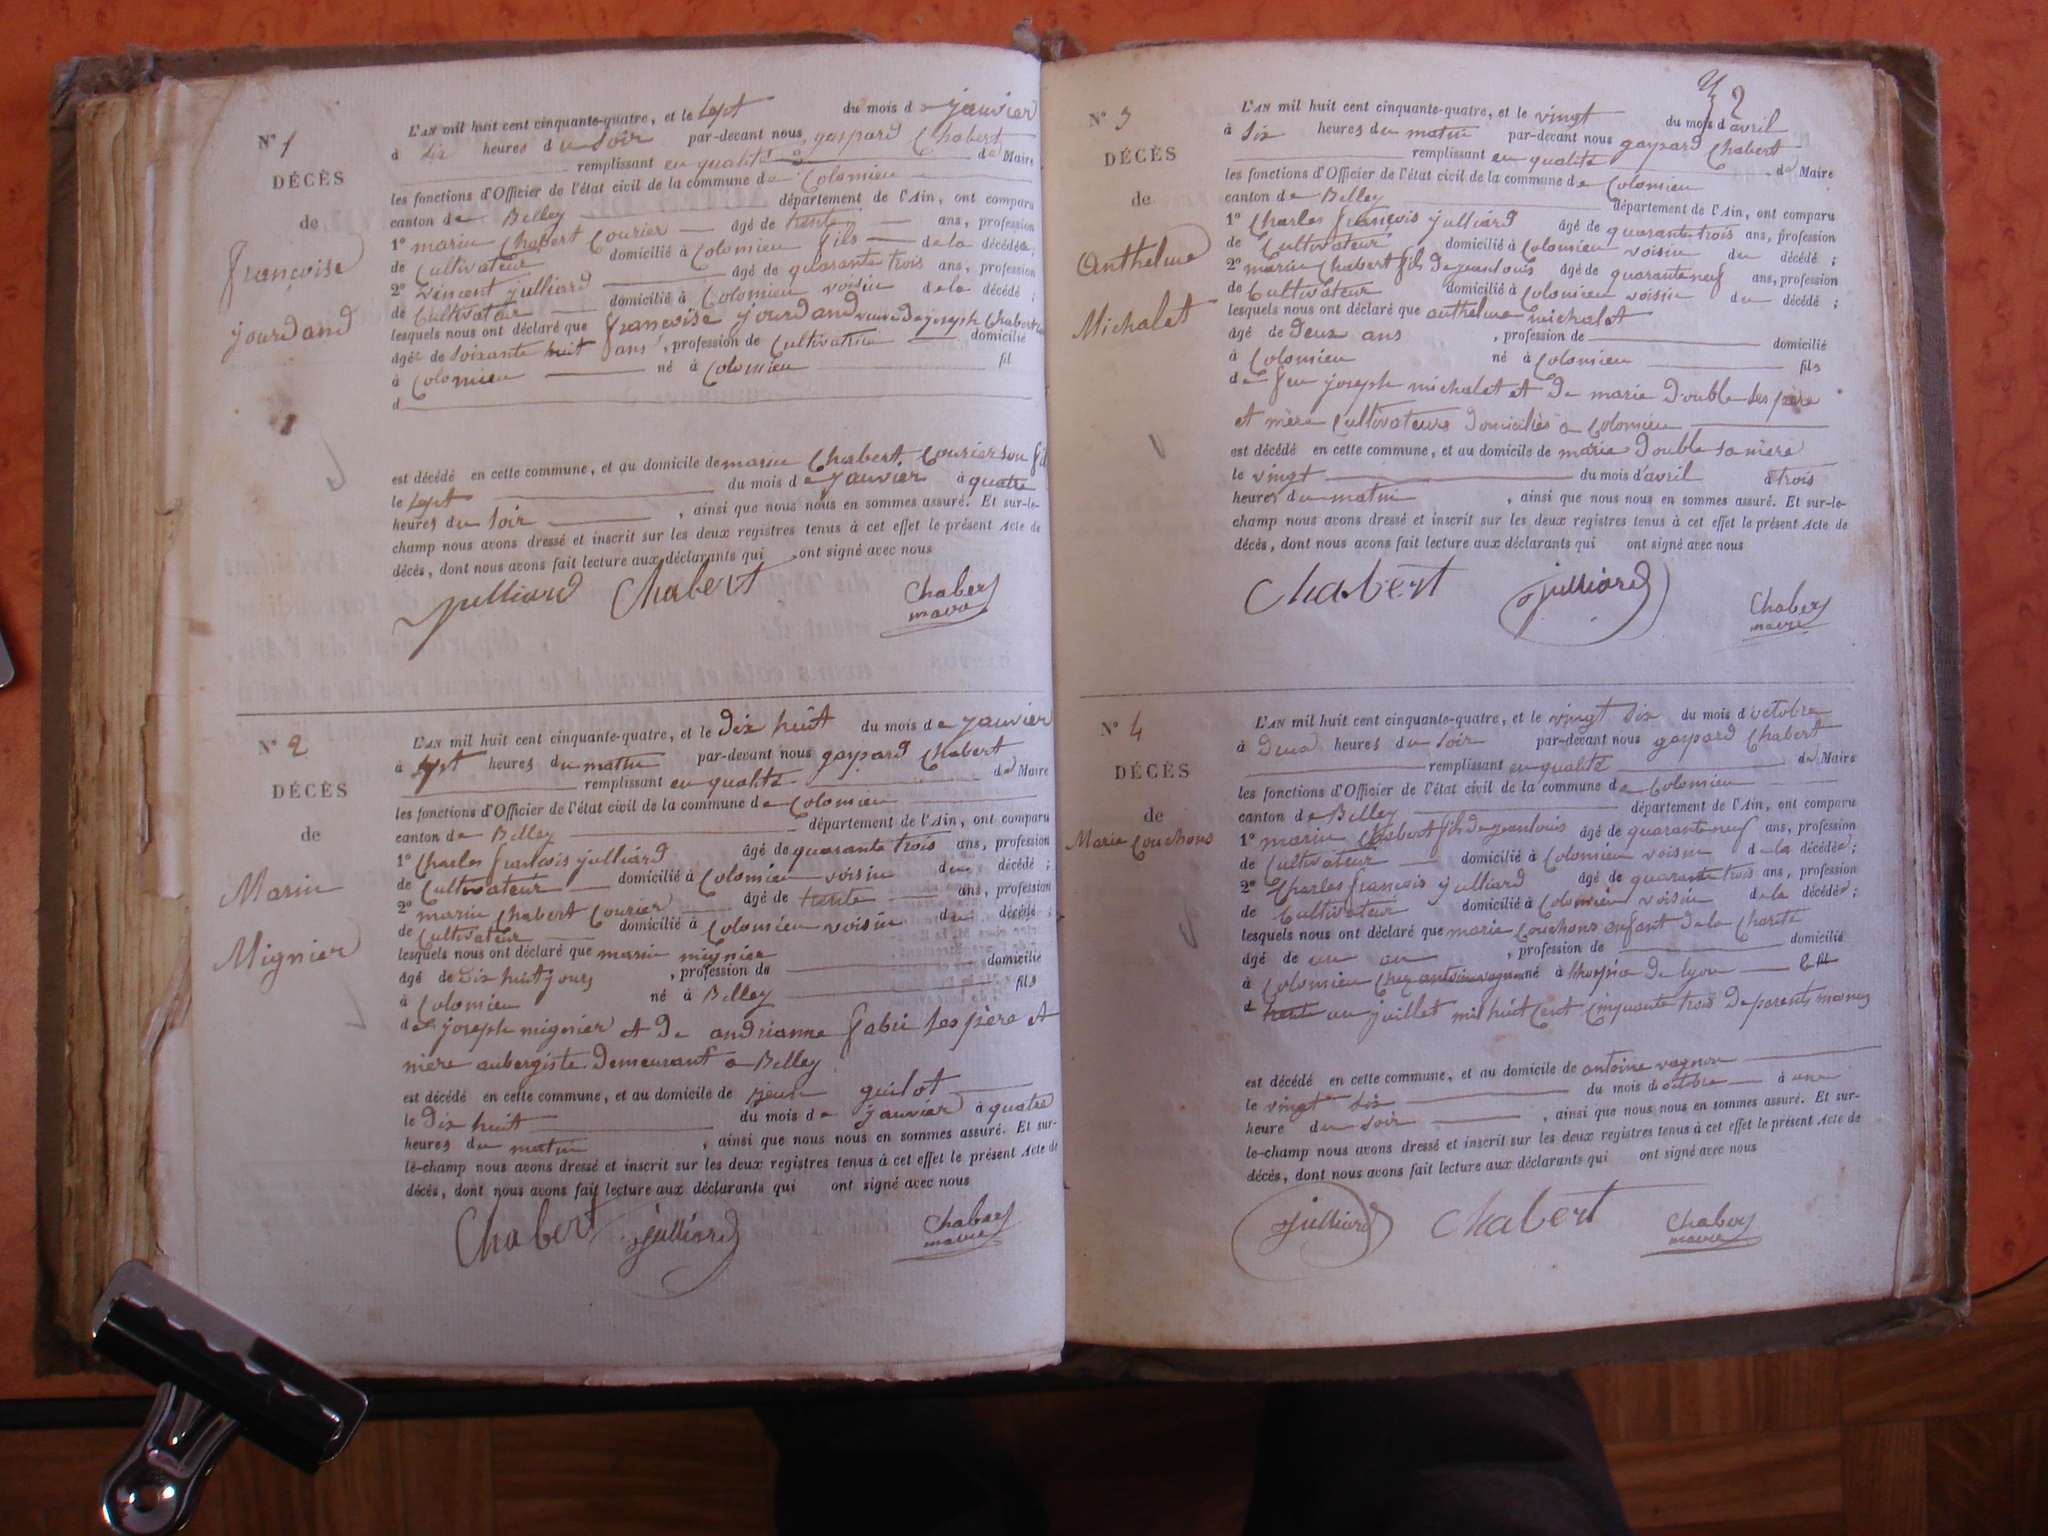 N° 1
DÉCÈS
de
françoise
jourdand
L'AN mil huit cent cinquante-quatre, et le sept du mois de janvier
à six heures du soir par-devant nous gaspard Chabert
remplissant en qualité de Maire
les fonctions d'Officier de l'état civil de la commune de Colomieu
canton de Belley département de l'Ain, ont comparu
1° marin Chabert Courier âgé de trente ans, profession
de Cultivateur domicilié à Colomieu fils de la décédée;
2° vincent julliard âgé de quarante trois ans, profession
de Cultivateur domicilié à Colomieu voisin de la décédé;
lesquels nous ont déclaré que françoise jourdand veuve de joseph Chabert
âgé de soixante huit ans, profession de Cultivatrice domicilié
à Colomieu né à Colomieu fil
d
est décédé en cette commune, et au domicile de marin Chabert Courier son fil
le sept du mois de janvier à quatre
heures du soir, ainsi que nous nous en sommes assuré. Et sur-le-
champ nous avons dressé et inscrit sur les deux registres tenus à cet effet le présent Acte de
décès, dont nous avons fait lecture aux déclarants qui ont signé avec nous
julliard Chabert Chabert
maire
N° 2
DÉCÈS
de
Marin
Mignier
L'AN mil huit cent cinquante-quatre, et le dix huit du mois de janvier
à sept heures du matin par-devant nous gaspard Chabert
remplissant en qualité de Maire
les fonctions d'Officier de l'état civil de la commune de Colomieu
canton de Belley département de l'Ain, ont comparu
1° Charles françois julliard âgé de quarante trois ans, profession
de Cultivateur domicilié à Colomieu voisin du décédé;
2° marin Chabert Courier âgé de trente ans, profession
de Cultivateur domicilié à Colomieu voisin du décédé;
lesquels nous ont déclaré que marin mignier
âgé de dix huit jours, profession de domicilié
à Colomieu né à Belley fils
de joseph mignier et de andrianne fabri ses père et
mère aubergiste demeurant à Belley
est décédé en cette commune, et au domicile de guilot
le dix huit du mois de janvier à quatre
heures du matin, ainsi que nous nous en sommes assuré. Et sur-
le-champ nous avons dressé et inscrit sur les deux registres tenus à cet effet le présent Acte de
décès, dont nous avons fait lecture aux déclarants qui ont signé avec nous
Chabert julliard Chabert
maire
32
N° 3
DÉCÈS
de
Anthelme
Michalet
L'AN mil huit cent cinquante-quatre, et le vingt du mois d'avril
à six heures du matin par-devant nous gaspard Chabert
remplissant en qualité de Maire
les fonctions d'Officier de l'état civil de la commune de Colomieu
canton de Belley département de l'Ain, ont comparu
1° Charles françois julliard âgé de quarante trois ans, profession
de Cultivateur domicilié à Colomieu voisin du décédé;
2° marin Chabert fils de jeanlouis âgé de quarante neuf ans, profession
de Cultivateur domicilié à Colomieu voisin du décédé;
lesquels nous ont déclaré que anthelme michalet
âgé de deux ans, profession de domicilié
à Colomieu né à Colomieu fils
de feu joseph michalet et de marie double ses père
et mère Cultivateurs domiciliés a Colomieu
est décédé en cette commune, et au domicile de marie double sa mère
le vingt du mois d'avril à trois
heures du matin, ainsi que nous nous en sommes assuré. Et sur-le-
champ nous avons dressé et inscrit sur les deux registres tenus à cet effet le présent Acte de
décès, dont nous avons fait lecture aux déclarants qui ont signé avec nous
Chabert julliard Chabert
maire
N° 4
DÉCÈS
de
Marie Couchons
L'AN mil huit cent cinquante-quatre, et le vingt six du mois d'octobre
à deux heures du soir par-devant nous gaspard Chabert
remplissant en qualité de Maire
les fonctions d'Officier de l'état civil de la commune de Colomieu
canton de Belley département de l'Ain, ont comparu
1° marin Chabert fils de jeanlouis âgé de quarante neuf ans, profession
de Cultivateur domicilié à Colomieu voisin de la décédée;
2° Charles françois julliard âgé de quarante trois ans, profession
de Cultivateur domicilié à Colomieu voisin de la décédée;
lesquels nous ont déclaré que marie Couchons enfant de la Charité
âgé de un an, profession de domicilié
à Colomieu Chez antoine vagnon né à lhospice de lyon le
trente un juillet mil huit Cent Cinquante trois de parents
est décédé en cette commune, et au domicile de antoine vagnon
le vingt six du mois d'octobre à une
heure du soir, ainsi que nous nous en sommes assuré. Et sur-
le-champ nous avons dressé et inscrit sur les deux registres tenus à cet effet le présent Acte de
décès, dont nous avons fait lecture aux déclarants qui ont signé avec nous
julliard Chabert Chabert
maire